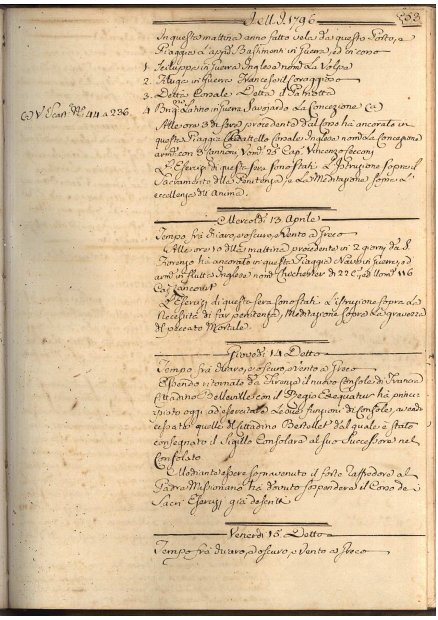 Dell' A. 1796
553
In questa mattina anno fatto vela da questo Porto, e
Piaggia i appiè Bastimenti in Guerra, ed in corso
1. Feluppa in Guerra Inglese nom. La Volpe
2. in Guerra Francese il Coraggioso
3. Detta Corsale Detta il Patriotta
4. Brig.no Latino in Guerra Savojardo La Concezione (a)
(a) V. Scan. N.° 44 a 236
Alle ore 3 di sera procedente dal Corso ha ancorato in
questa Piaggia Corsale Inglese nom. La Concezione
arm. con 3 Cannoni, Uom. 25 Cap. Vincenzo
L'Esercizj di questa sera sono stati L'Istruzione sopra il
Sacramento della Penitenza, e La Meditazione sopra l'
eccellenza dell' Anima.
Mercoledì 13 Aprile
Tempo frà chiaro, e oscuro, e Vento a Greco
Alle ore 10 della mattina procedente in 2 giorni da S.
Fiorenzo ha ancorato in questa Piaggia Nave in Guerra, ed
arm. in flutto Inglese nom. Chichester di 22 C., ed Uom. 116
Cap.
L'Esercizj di questa sera sono stati L'Istruzione sopra La
Necessità di far penitenza, Meditazione sopra La gravezza
del peccato Mortale.
Giovedì 14 Detto
Tempo frà chiaro, e oscuro, e vento a Greco
Essendo ritornato da Firenze il nuovo Console di Francia
Cittadino Delleville con il Regio Exequatur hà princi
piato oggi ad esercitare Le di Lui funzioni di Console, avendo
cessato quelle il Cittadino Bertellet dal quale è stato
consegnato il Sigillo Consolare al suo Successore nel
Consolato
Mediante essere sopravvenuto il forte raffreddore al
Padre Missionario hà dovuto sospendere il Corso de
Sacri Esercizj già descritti
Venerdì 15. Detto
Tempo frà chiaro, e oscuro, e Vento a Greco